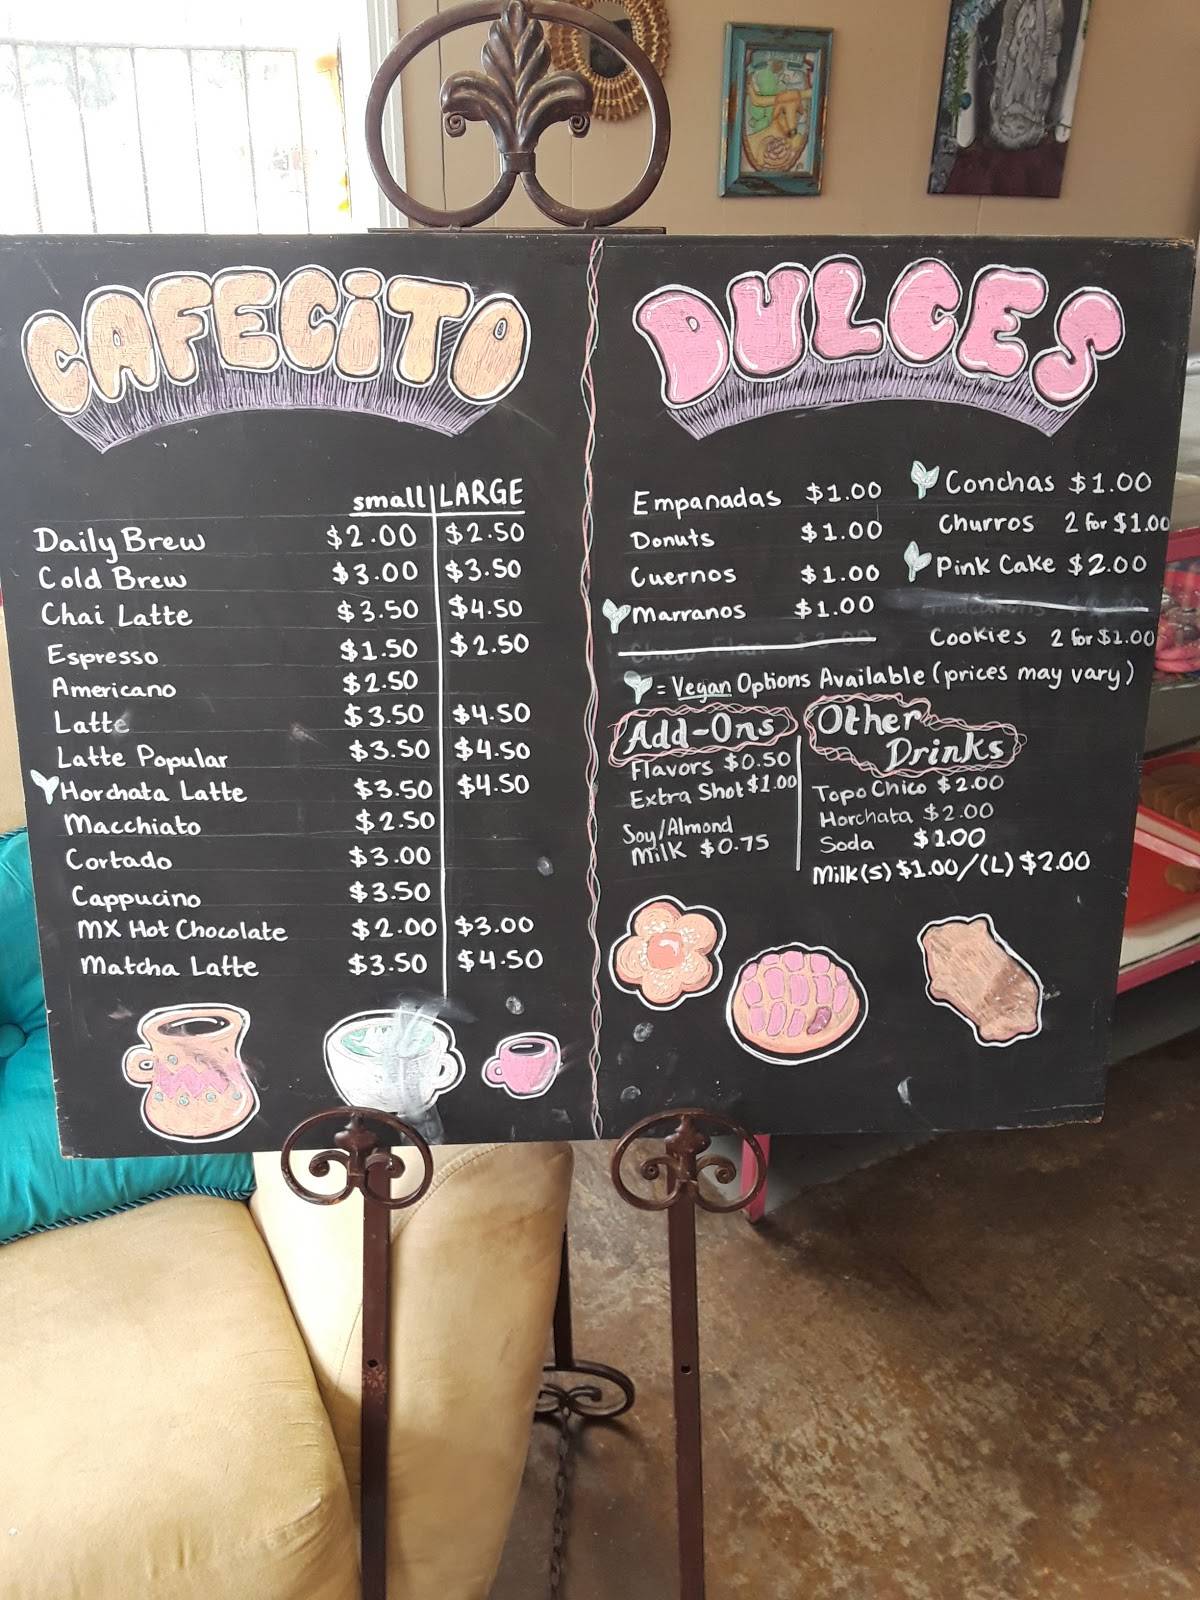 CAFECiTO
small LARGE
Daily Brew $2.00 $2.50
Cold Brew $3.00 $3.50
Chai Latte $3.50 $4.50
Espresso $1.50 $2.50
Americano $2.50
Latte $3.50 $4.50
Latte Popular $3.50 $4.50
Horchata Latte $3.50 $4.50
Macchiato $2.50
Cortado $3.00
Cappucino $3.50
MX Hot Chocolate $2.00 $3.00
Matcha Latte $3.50 $4.50
DULCES
Empanadas $1.00
Donuts $1.00
Cuernos $1.00
Marranos $1.00
Choco Flan
Conchas $1.00
Churros 2 for $1.00
Pink Cake $2.00
Cookies 2 for $1.00
= Vegan Options Available (prices may vary)
Add-Ons
Flavors $0.50
Extra Shot $1.00
Soy/Almond
Milk $0.75
Other
Drinks
Topo Chico $2.00
Horchata $2.00
Soda $1.00
Milk(s) $1.00/(L) $2.00